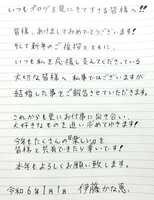 いつもブログを見にきて下さる皆様へ!!
皆様、あけましておめでとうございます!
そして新年のご挨拶とともに、
いつも私を応援し支えてくださっている
大切な皆様へ 私事ではございますが
結婚した事をご報告させていただきます。
これからも更にお仕事に向き合い、
大好きなものを追い求めてゆきます!
今年もたくさんの楽しいを
皆様と共有できたら幸いです!
本年もよろしくお願い致します。
令和6年1月1日 伊藤かな恵